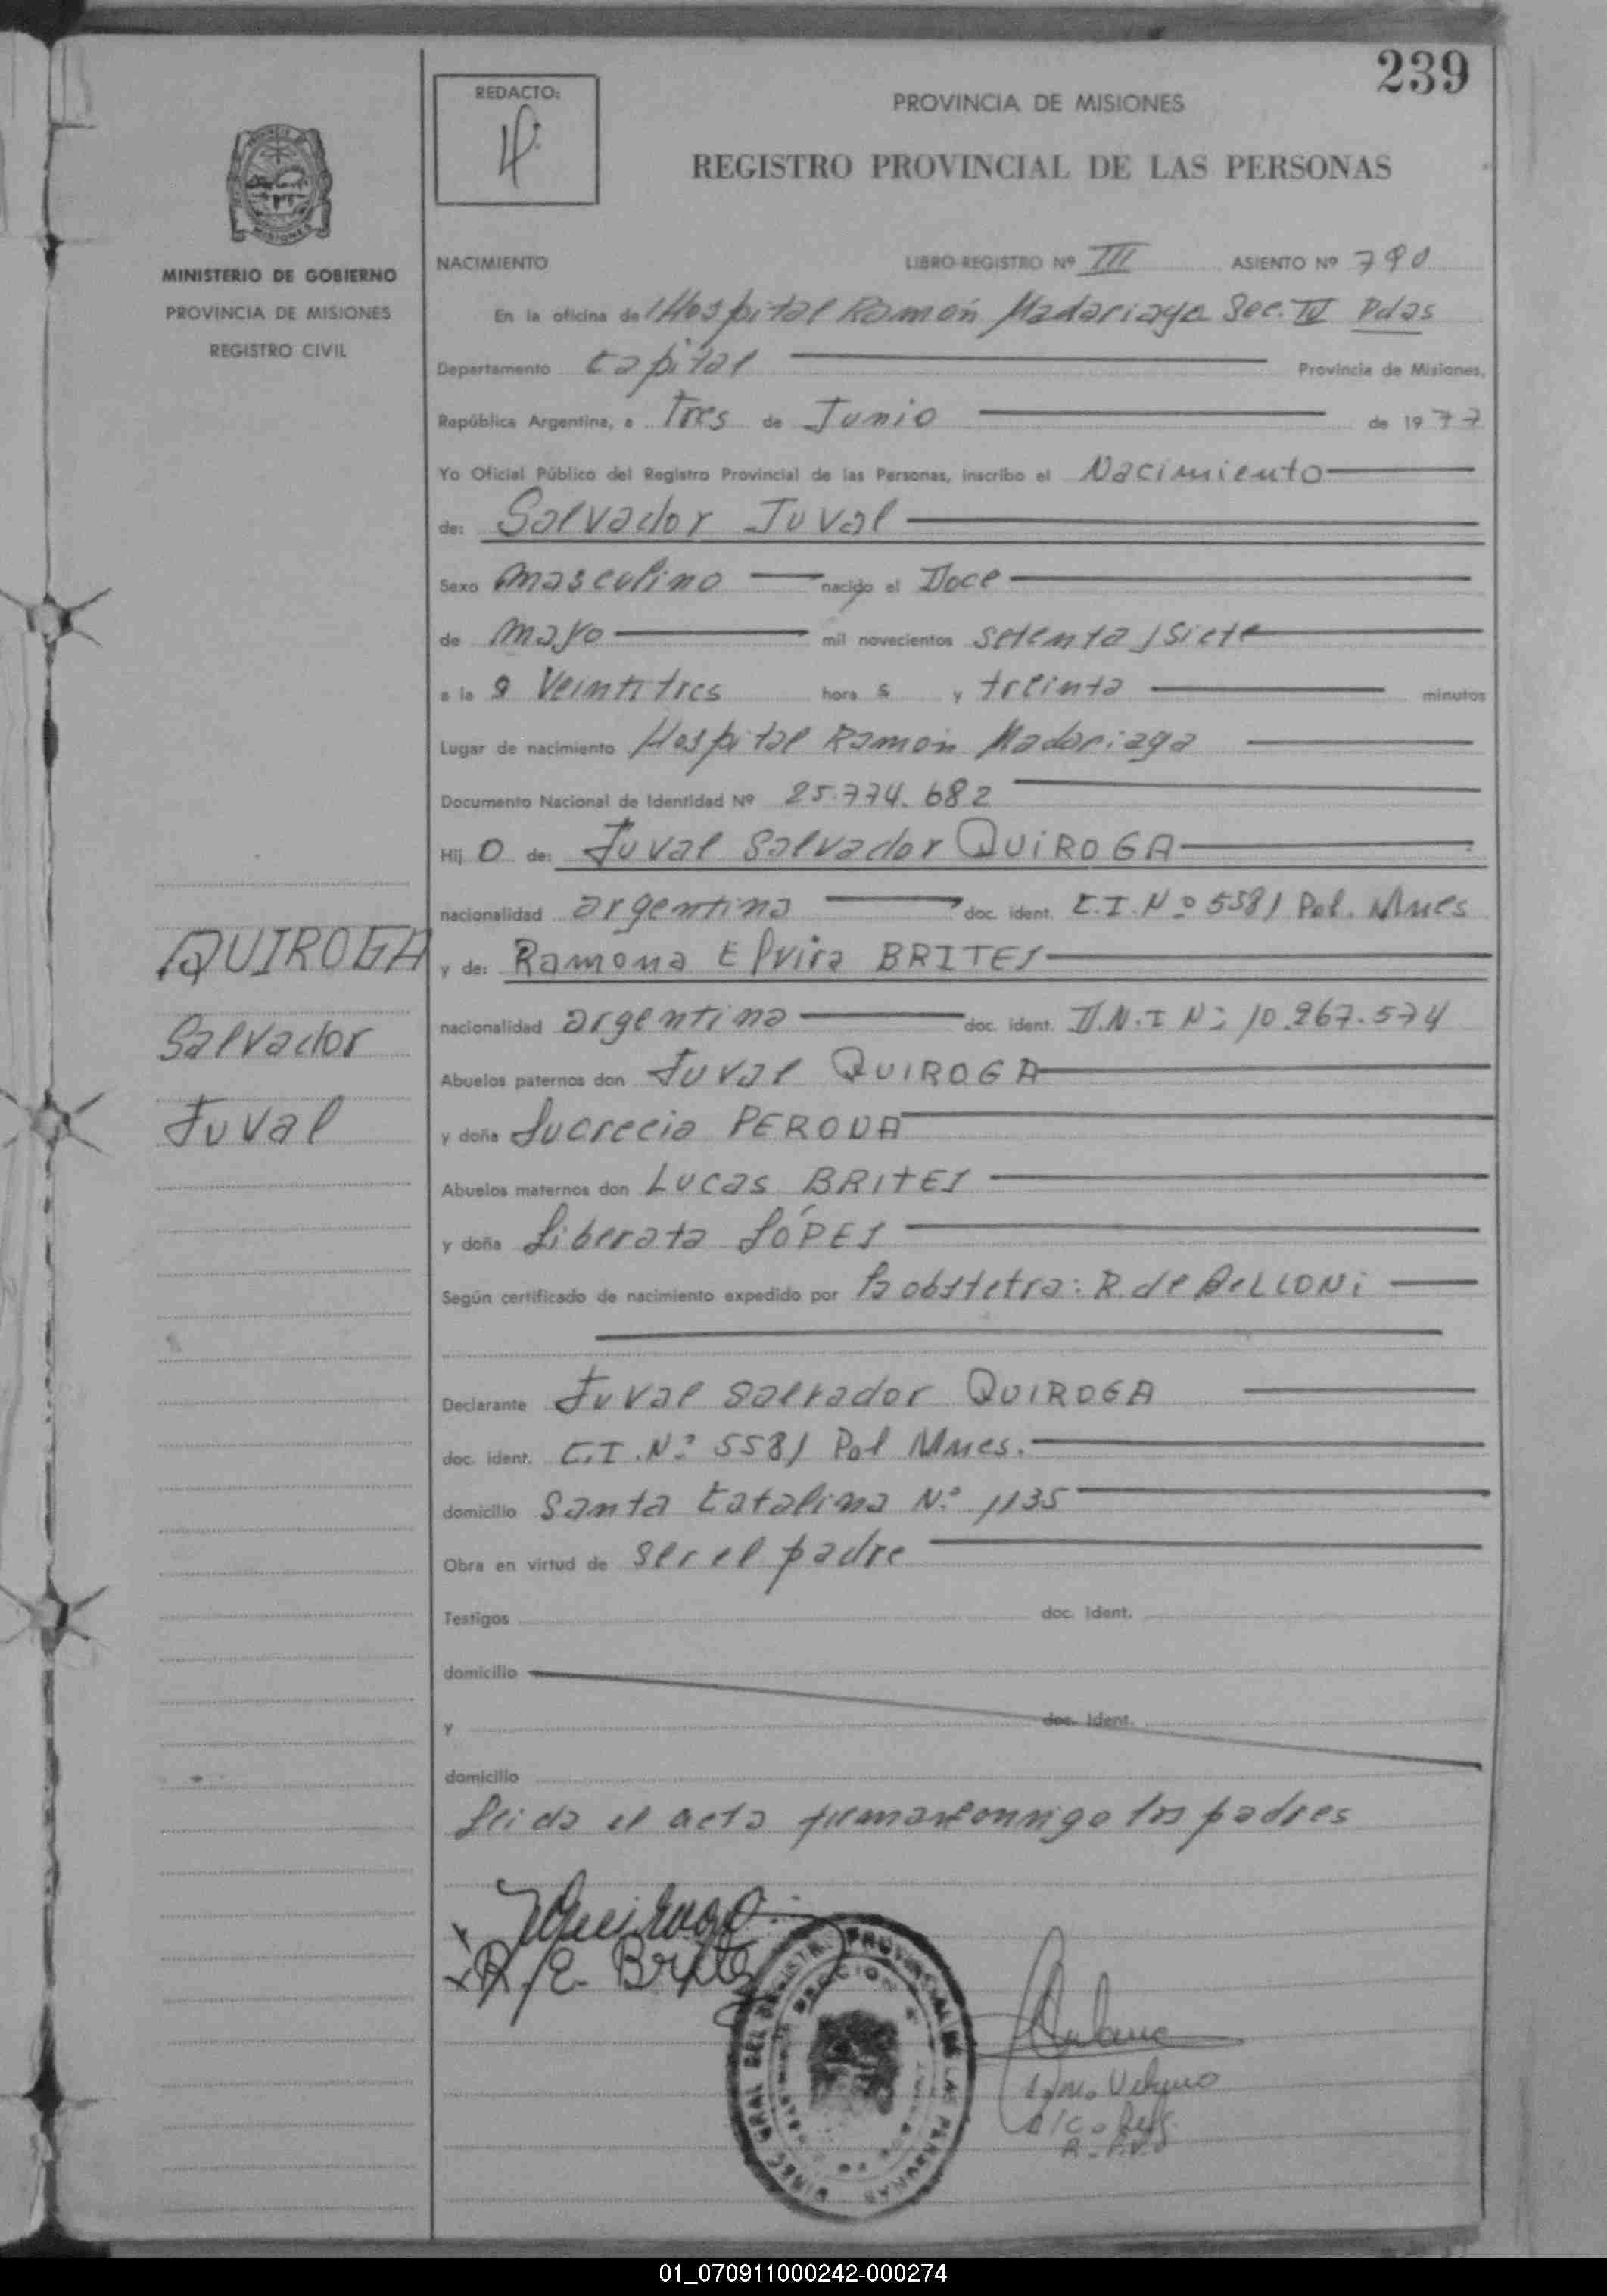 239
REDACTO:
PROVINCIA DE MISIONES
REGISTRO PROVINCIAL DE LAS PERSONAS
MINISTERIO DE GOBIERNO
PROVINCIA DE MISIONES
REGISTRO CIVIL
NACIMIENTO LIBRO-REGISTRO Nº III ASIENTO Nº 790
En la oficina de Hospital Ramón Madariaga Sec. IV Pdas
Departamento Capital Provincia de Misiones,
República Argentina, a Tres de Junio de 1977
Yo Oficial Público del Registro Provincial de las Personas, inscribo el Nacimiento
de: Salvador Juval
Sexo masculino nacido el Doce
de mayo mil novecientos setenta y siete
a la s veintitres hora s y treinta minutos
Lugar de nacimiento Hospital Ramón Madariaga
Documento Nacional de Identidad Nº 25.774.682
Hij o de: Juval Salvador QUIROGA
nacionalidad argentina doc. ident. C.I. Nº 5581 Pol. Mnes
y de: Ramona Elvira BRITES
nacionalidad argentina doc. ident. D.N.I Nº 10.967.574
Abuelos paternos don Juval QUIROGA
y doña Lucrecia
Abuelos maternos don Lucas BRITES
y doña Liberata LÓPES
Según certificado de nacimiento expedido por la obstetra: R. de BELLONI
Declarante Juval Salvador QUIROGA
doc. ident. C.I. Nº 5581 Pol Mnes.
domicilio Santa Catalina Nº 1135
Obra en virtud de ser el padre
Testigos doc. ident.
domicilio
y doc. ident.
domicilio
Leida el acta firman conmigo los padres
QUIROGA
Salvador
Juval
R. E. Brites
DIREC. GRAL DEL REGISTRO PROVINCIAL DE LAS PERSONAS
01_070911000242-000274